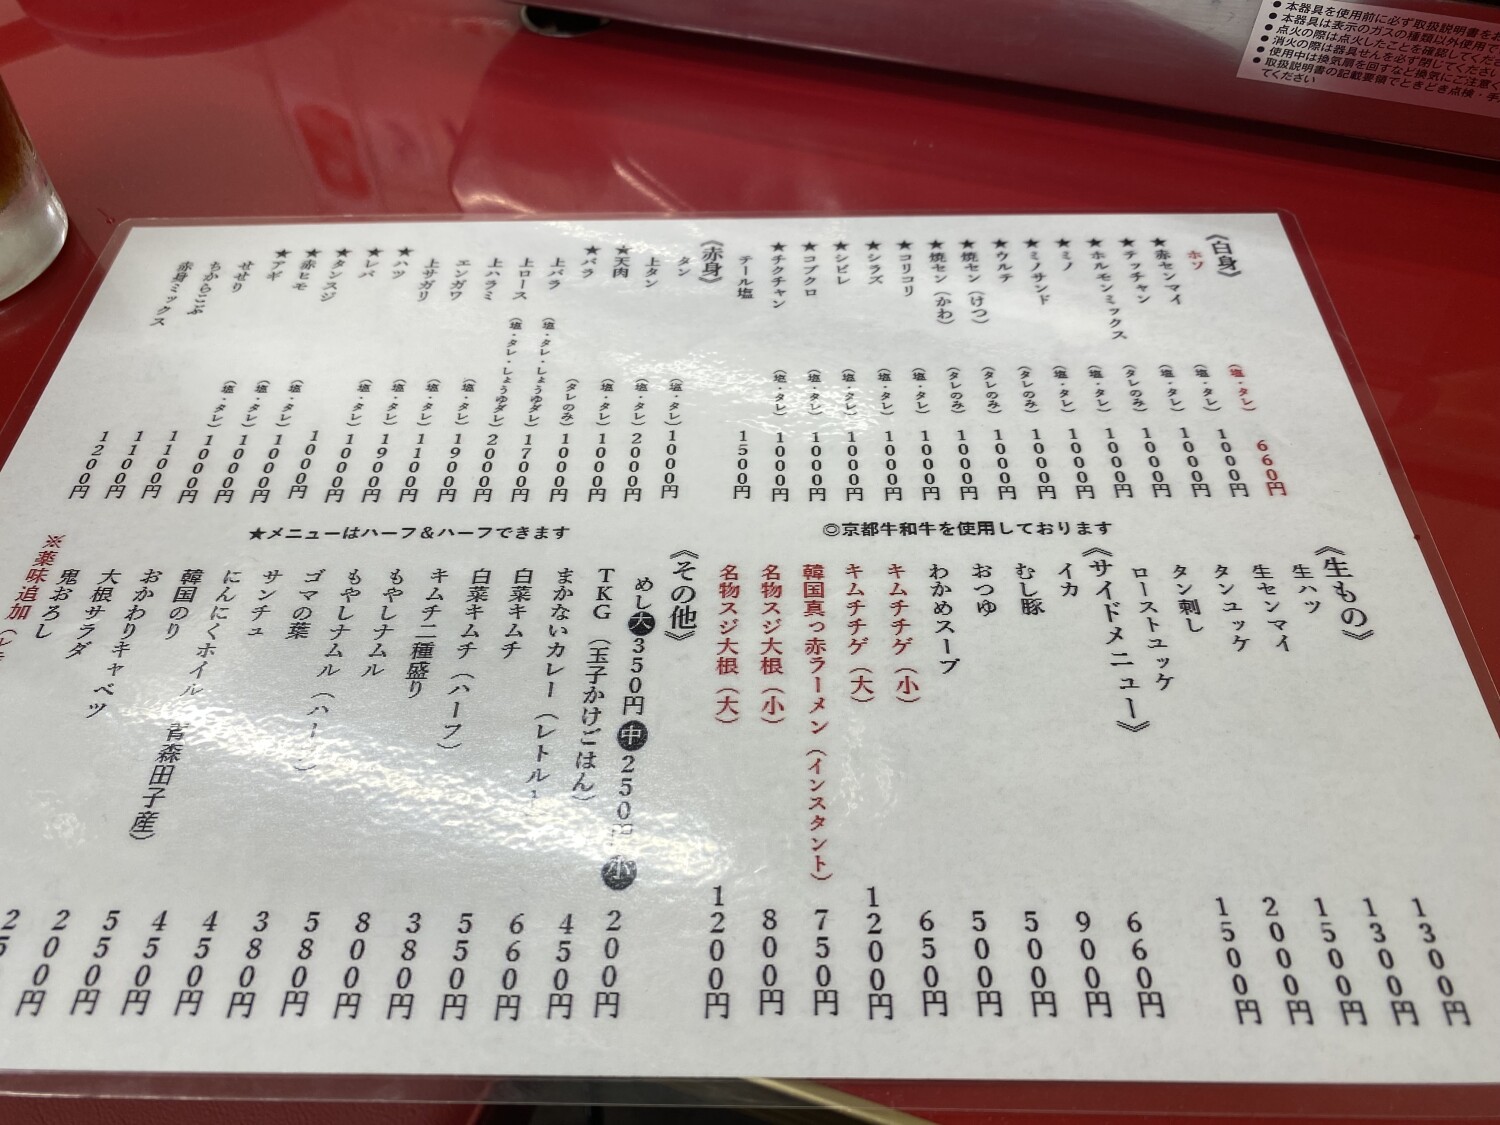 ● 本器具を使用前に必ず取扱説明書をお
● 本器具は表示のガスの種類以外使用で
● 点火の際は点火したことを確認してくださ
● 消火の際は器具せんを必ず閉じてください
● 使用中は換気扇を回すなど換気にご注意く
● 取扱説明書の記載要領でときどき点検・手
てください
《白身》
ホソ （塩・タレ） 660円
★赤センマイ （塩・タレ） 1000円
★テッチャン （塩・タレ） 1000円
★ホルモンミックス （タレのみ） 1000円
★ミノ （塩・タレ） 1000円
★ミノサンド （塩・タレ） 1000円
★ウルテ （タレのみ） 1000円
★焼セン（けつ） （タレのみ） 1000円
★焼セン（かわ） （タレのみ） 1000円
★コリコリ （塩・タレ） 1000円
★シラズ （塩・タレ） 1000円
★シビレ （塩・タレ） 1000円
★コブクロ （塩・タレ） 1000円
★チクチャン （塩・タレ） 1000円
テール塩 1500円
《赤身》
タン （塩・タレ） 1000円
上タン （塩・タレ） 2000円
★天肉 （塩・タレ） 1000円
★バラ （タレのみ） 1000円
上バラ （塩・タレ・しょうゆダレ） 1700円
上ロース （塩・タレ・しょうゆダレ） 2000円
上ハラミ （塩・タレ） 1900円
エンガワ （塩・タレ） 1100円
上サガリ （塩・タレ） 1900円
★ハツ （塩・タレ） 1000円
★レバ 1000円
★タンスジ （塩・タレ） 1000円
★赤ヒモ （塩・タレ） 1000円
★アギ （塩・タレ） 1000円
せせり 1100円
ちからこぶ 1100円
赤身ミックス 1200円
◎京都牛和牛を使用しております
★メニューはハーフ＆ハーフできます
《生もの》
生ハツ 1300円
生センマイ 1300円
タンユッケ 1500円
タン刺し 2000円
ローストユッケ 1500円
《サイドメニュー》
イカ 660円
むし豚 900円
おつゆ 500円
わかめスープ 500円
キムチチゲ（小） 650円
キムチチゲ（大） 1200円
韓国真っ赤ラーメン（インスタント） 750円
名物スジ大根（小） 800円
名物スジ大根（大） 1200円
《その他》
めし大350円 中250円 小 200円
TKG（玉子かけごはん） 450円
まかないカレー（レトルト 660円
白菜キムチ 550円
白菜キムチ（ハーフ） 380円
キムチ二種盛り 800円
もやしナムル 580円
もやしナムル（ハーフ） 380円
ゴマの葉 450円
サンチュ 450円
にんにくホイル 青森田子産） 550円
韓国のり 200円
おかわりキャベツ
大根サラダ
鬼おろし
※薬味追加